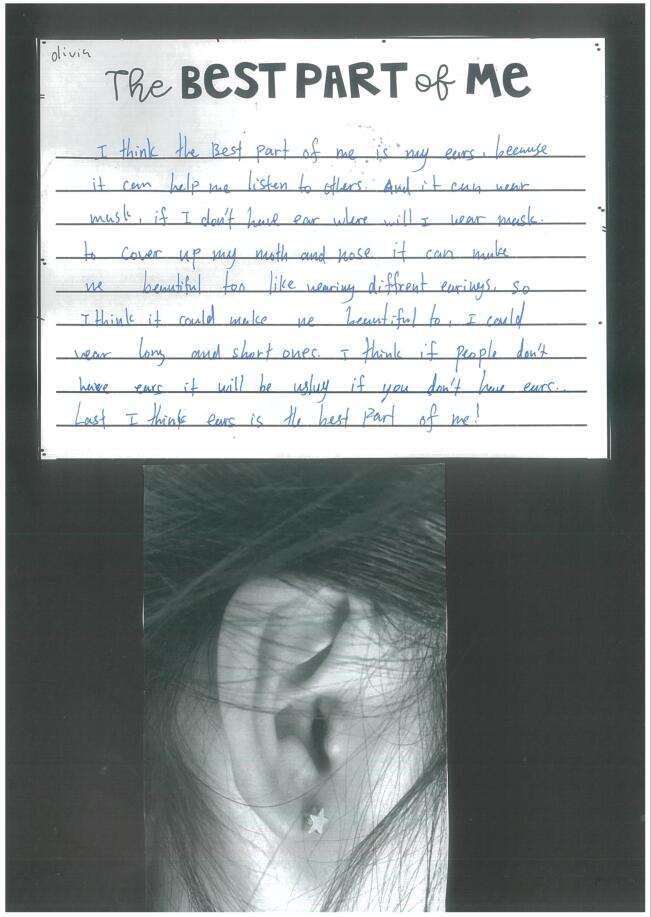 olivia
The BEST PART of ME
I think the Best part of me is my ears, because
it can help me listen to others. And it can wear
mask, if I don't have ear where will I wear mask.
to cover up my moth and nose. it can make
me beautiful too like wearing diffrent earings. So
I think it could make me beautiful to, I could
wear long and short ones. I think if people don't
have ears it will be ugluy if you don't have ears..
Last I think ears is the best Part of me!